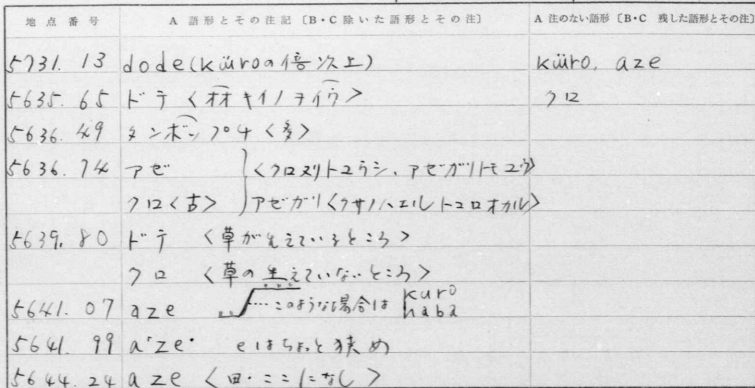 地点番号 A 語形とその注記〔B・C 除いた語形とその注〕 A 注のない語形〔B・C 残した語形とその注〕
5731. 13 dode(küroの倍以上) küro, aze
5635. 65 ドテ〈オオキイノヲイウ〉 クロ
5636. 49 タンボンプチ〈多〉
5636. 74 アゼ 〈クロヌリトユウシ、アゼガリトモユウ〉
クロ〈古〉 アゼガリ〈クサノハエルトコロオカル〉
5639. 80 ドテ 〈草が生えているところ〉
クロ 〈草の生えていないところ〉
5641. 07 aze ……このような場合は kuro
haba
5641. 99 a'ze・ eはちょっと狭め
5644. 24 aze 〈田・ここになし〉